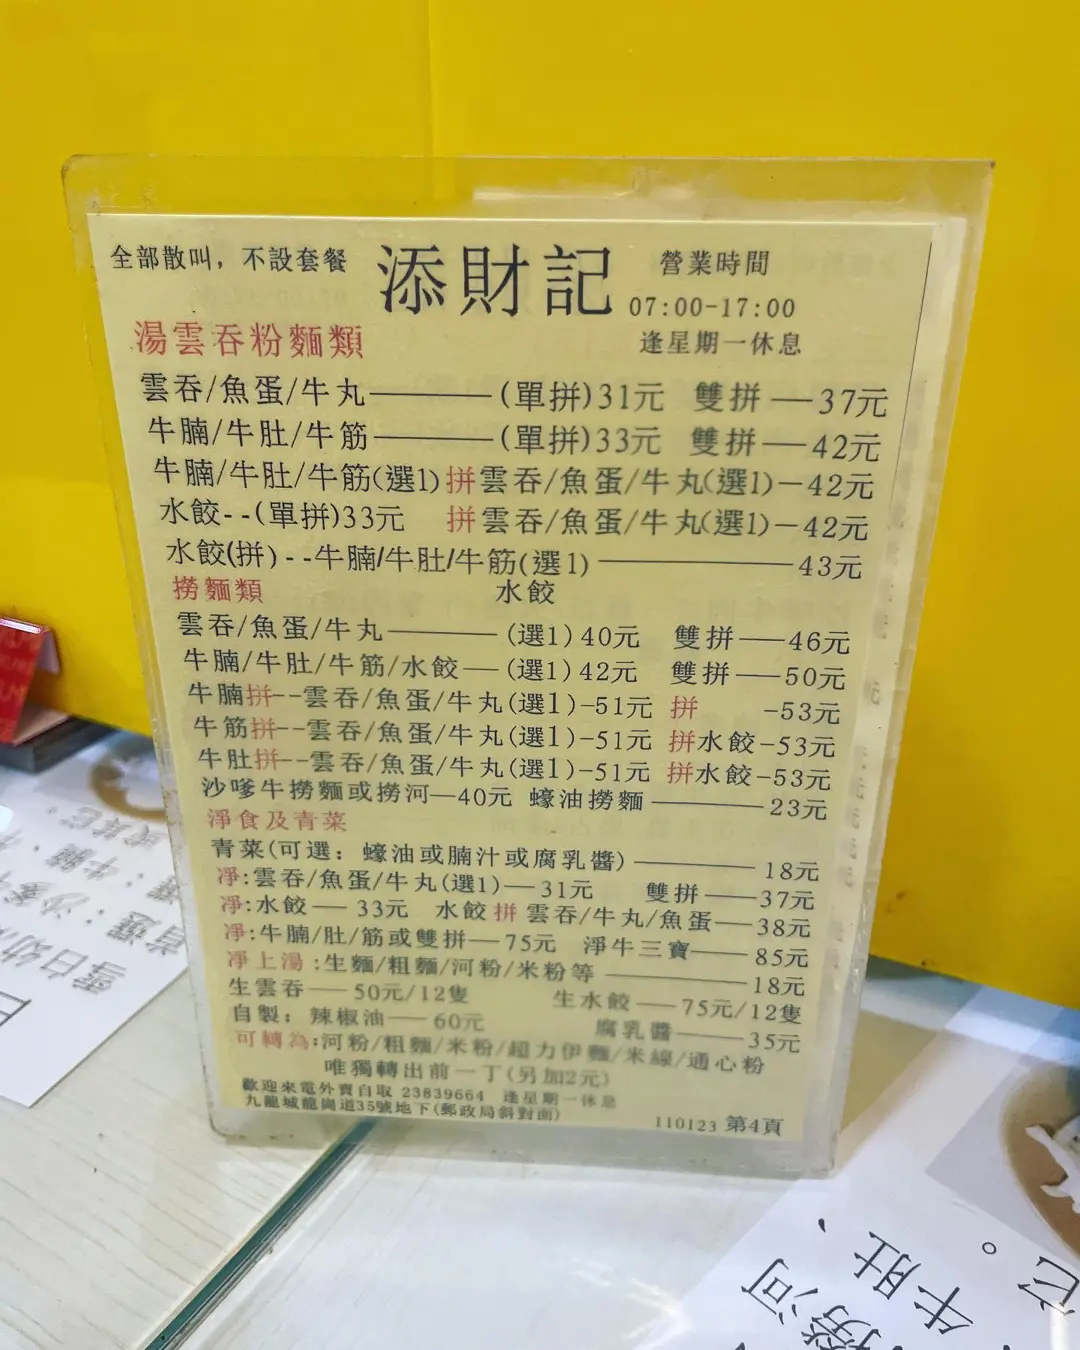 全部散叫，不設套餐 添財記 營業時間
07:00-17:00
逢星期一休息
湯雲吞粉麵類
雲吞/魚蛋/牛丸————(單拼)31元 雙拼—37元
牛腩/牛肚/牛筋————(單拼)33元 雙拼—42元
牛腩/牛肚/牛筋(選1)拼雲吞/魚蛋/牛丸(選1)—42元
水餃--(單拼)33元 拼雲吞/魚蛋/牛丸(選1)—42元
水餃(拼)--牛腩/牛肚/牛筋(選1)————43元
撈麵類 水餃
雲吞/魚蛋/牛丸————(選1)40元 雙拼——46元
牛腩/牛肚/牛筋/水餃—(選1)42元 雙拼——50元
牛腩拼--雲吞/魚蛋/牛丸(選1)-51元 拼 -53元
牛筋拼--雲吞/魚蛋/牛丸(選1)-51元 拼水餃-53元
牛肚拼--雲吞/魚蛋/牛丸(選1)-51元 拼水餃-53元
沙嗲牛撈麵或撈河—40元 蠔油撈麵————23元
淨食及青菜
青菜(可選：蠔油或腩汁或腐乳醬)————18元
凈:雲吞/魚蛋/牛丸(選1)—31元 雙拼——37元
凈:水餃— 33元 水餃拼 雲吞/牛丸/魚蛋—38元
凈:牛腩/肚/筋或雙拼—75元 淨牛三寶——85元
凈上湯:生麵/粗麵/河粉/米粉等————18元
生雲吞——50元/12隻 生水餃——75元/12隻
自製：辣椒油——60元 腐乳醬———35元
可轉為:河粉/粗麵/米粉/超力伊麵/米線/通心粉
唯獨轉出前一丁(另加2元)
歡迎來電外賣自取 23839664 逢星期一休息
九龍城龍崗道35號地下(郵政局斜對面)
110123 第4頁
雪白幼
首選：沙嗲牛
撈河、
牛肚、
它。